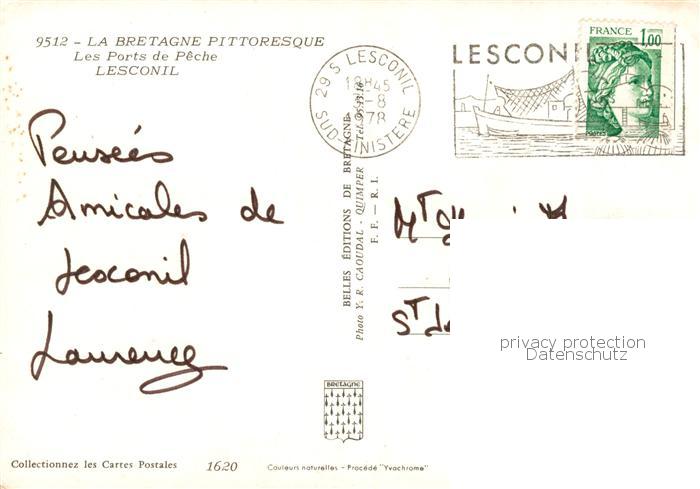 9512 - LA BRETAGNE PITTORESQUE
Les Ports de Pêche
LESCONIL
Pensées
Amicales de
Lesconil
Laurence
29 S LESCONIL
18H45
-8
1978
SUD-FINISTERE
LESCONIL
FRANCE 1,00
BELLES ÉDITIONS DE BRETAGNE
Photo Y. R. CAOUDAL - QUIMPER Tel. 95.13.16
F. F. — R. I.
Mr
St
privacy protection
Datenschutz
BRETAGNE
Collectionnez les Cartes Postales 1620 Couleurs naturelles - Procédé "Yvachrome"